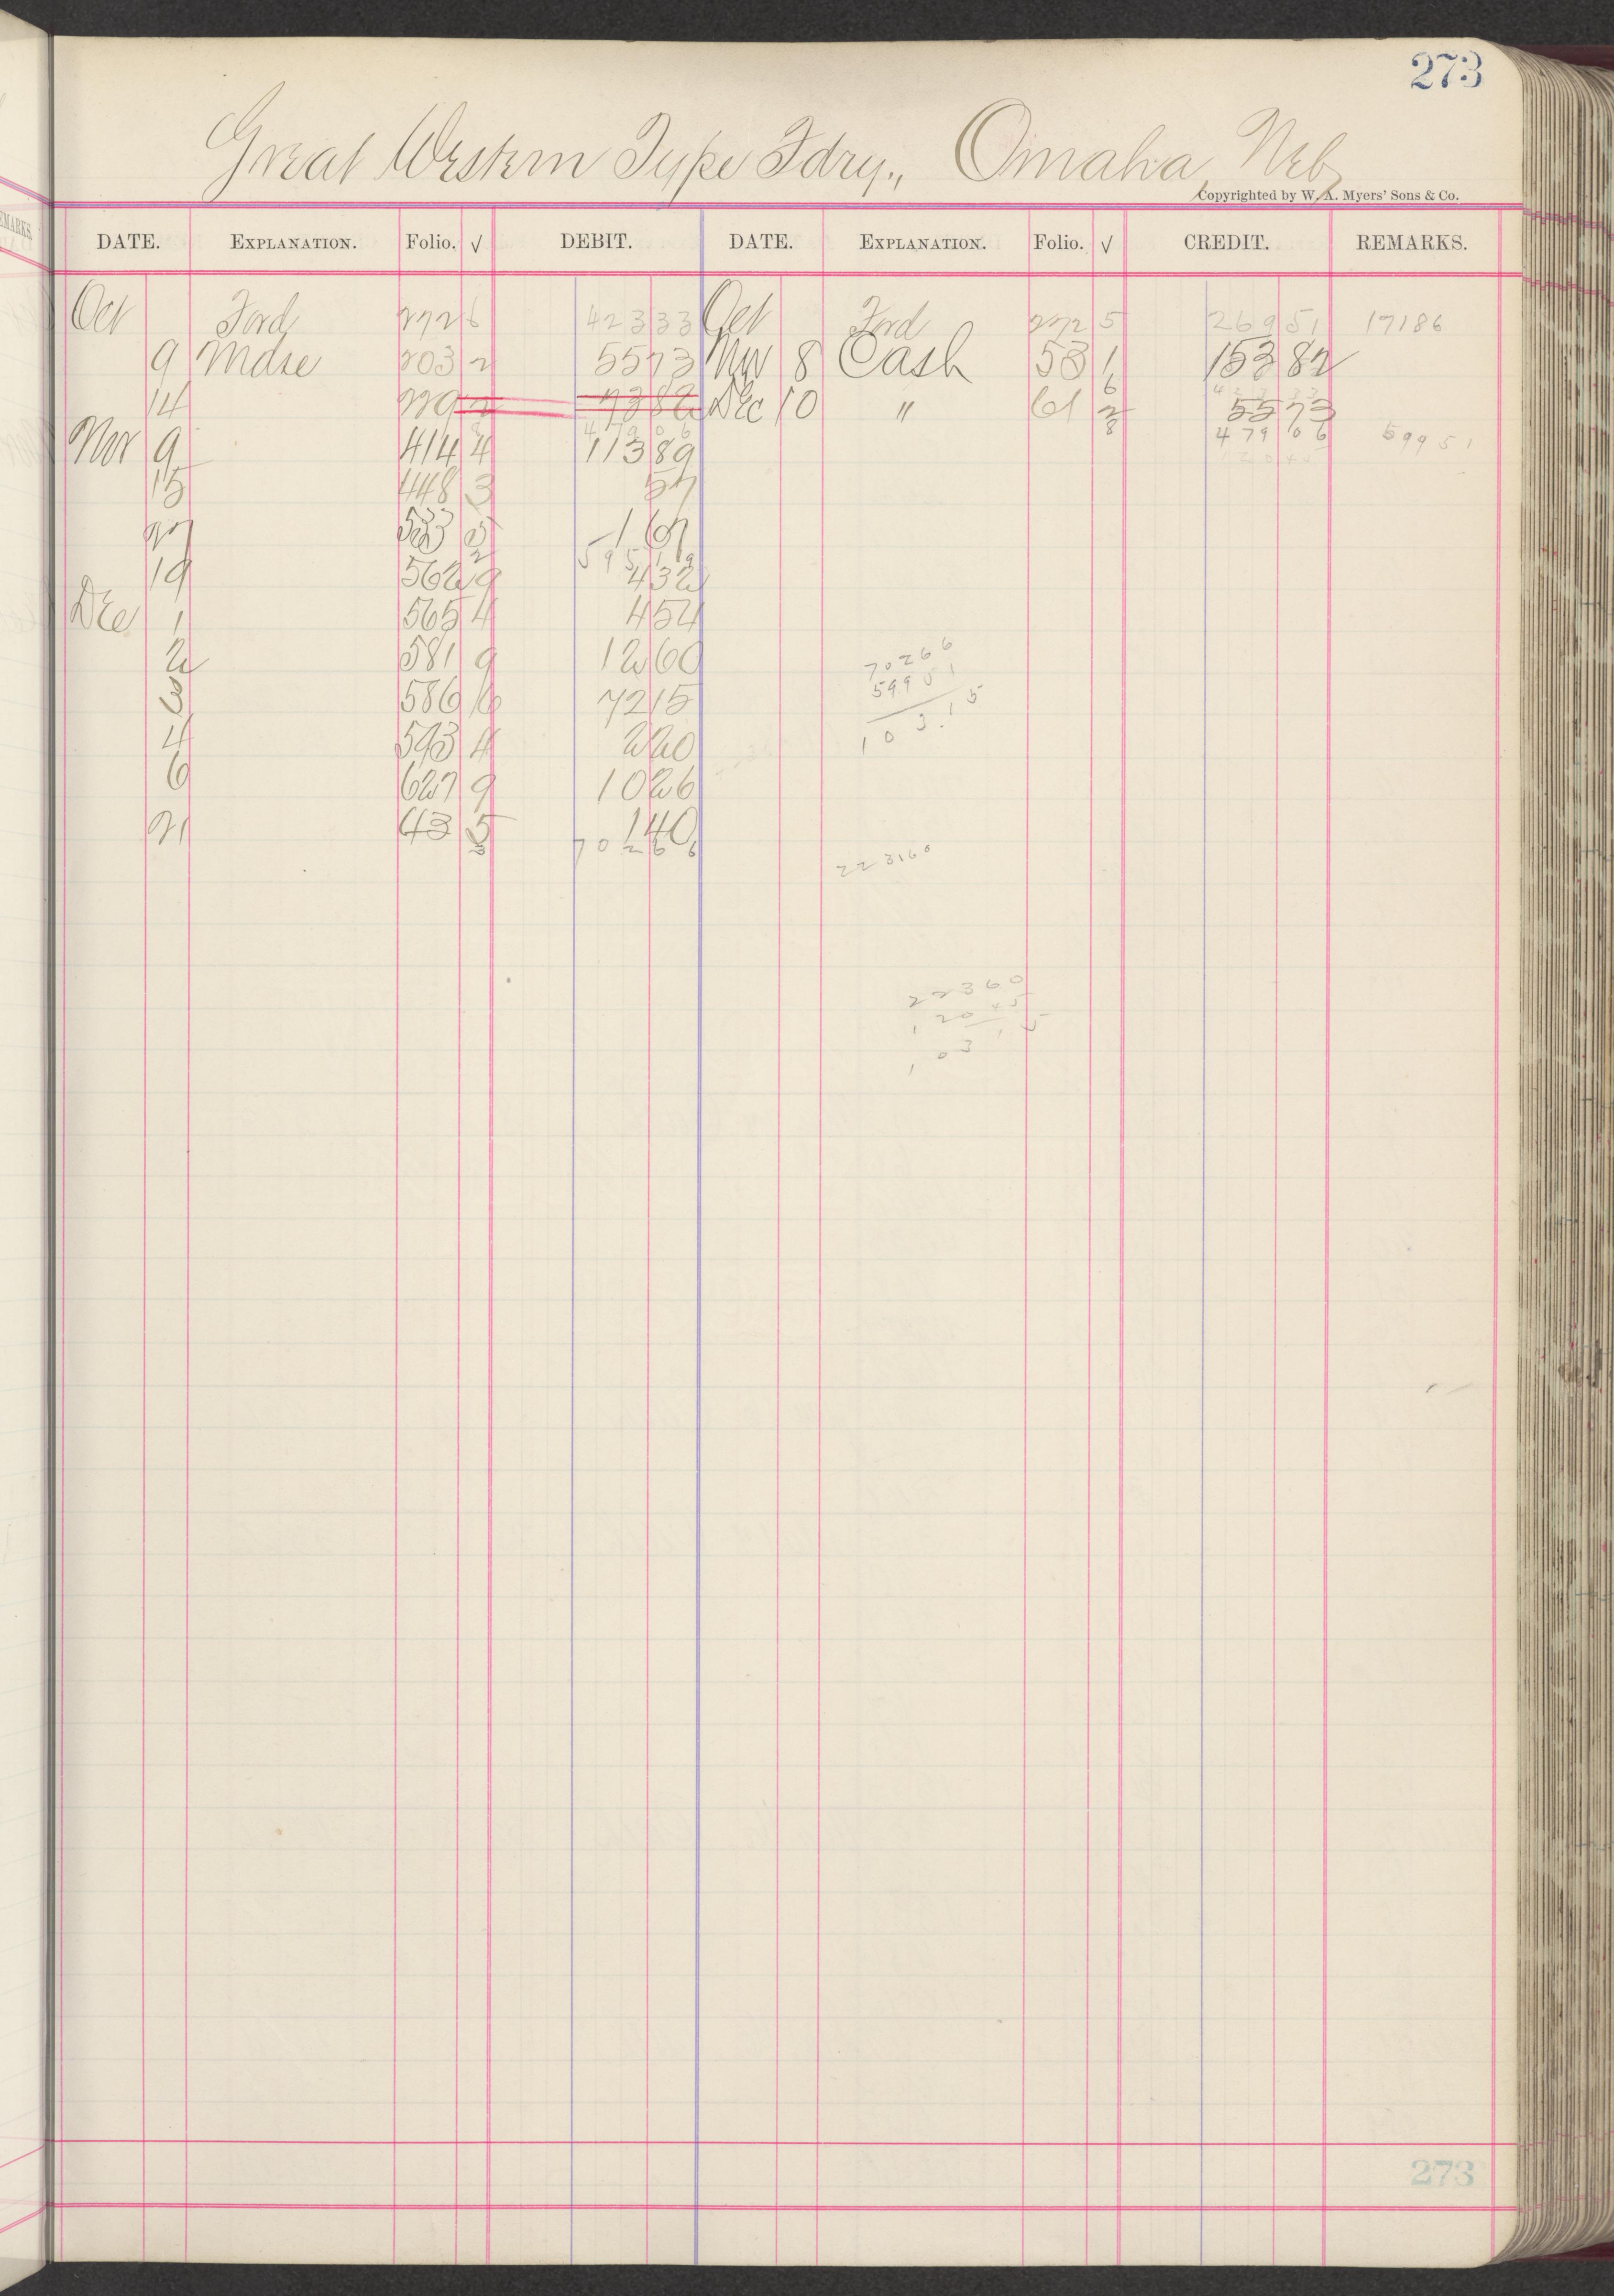 273
Great Western Type Fdry., Omaha, Neb,
Copyrighted by W. A. Myers' Sons & Co.
DATE. EXPLANATION. Folio. √ DEBIT. DATE. EXPLANATION. Folio. √ CREDIT. REMARKS.
Oct Ford 272 6 423 33 Oct Ford 272 5 269 51 171 86
9 Mdse 203 2 55 73 Nov 8 Cash 53 1 153 82
6 423 33
14 229 2 73 82 Dec 10 " 61 2 55 73
479 06 8 479 06 599 51
Nov 9 414 4 113 89 120 45
15 448 3 57
27 533 5 1 67
2 595 19
19 562 9 4 32
Dec 1 565 4 4 54
2 581 9 12 60
3 586 6 72 15
4 593 4 2 20
6 627 9 10 26
21 43 5 1 40
3 702 66
702 66
599 51
103.15
223160
22360
120 45
103 15
273